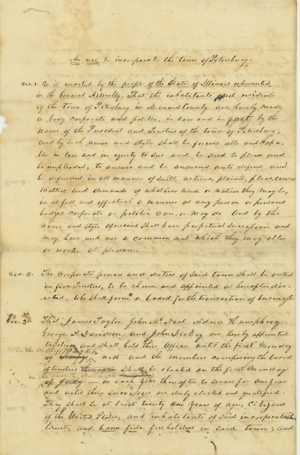 An act to incorporate the town of Petersburg.
Sec. 1. Be it enacted by the people of the State of Illinois represented
in the General Assembly, That the inhabitants and residents
of the Town of Petersburg in Menard County are hereby made
a body corporate and politic, in law and in fact by the
name of the President and Trustees of the town of Petersburg;
And by such name and style shall be forever able and capa-
ble in law and in equity to sue and be sued to plead and
impleaded, to answer and be answered unto defend and
be defended in all manner of suits, actions, plaints, pleas, causes
matters and demands of whatever kind or nature they may be,
in as full and effectual a manner as any person or persons
bodies corporate or politic can, or may do And by the
name and style aforesaid shall have perpetual succession and
may have and use a common seal which they may alter
or at pleasure
Sec. 2. The Corporate powers and duties of said town shall be vested
in five Trustees, to be chosen and appointed as hereinafter di-
rected, who shall form a board for the transaction of business
Sec. 3. That James Taylor John McNeal Humphrey
George Davidson and John are hereby appointed
Trustees and shall hold their Offices until the first Monday
of and the members composing the board
of trustees shall be elected on the first Monday
of in each year thereafter to serve for one year
and until their successors are duly elected and qualified
They shall be at least twenty one years of age, Citizens
of the United States, and inhabitants of said incorporated
limits, and bona fide freeholders in said town; and